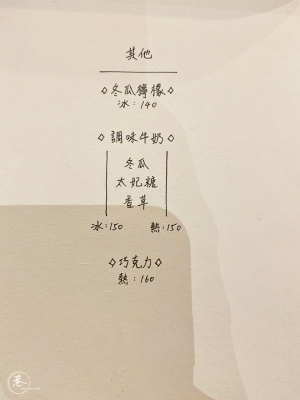 其他
◇冬瓜檸檬◇
冰：140
◇調味牛奶◇
冬瓜
太妃糖
香草
冰：150 熱：150
◇巧克力◇
熱：160